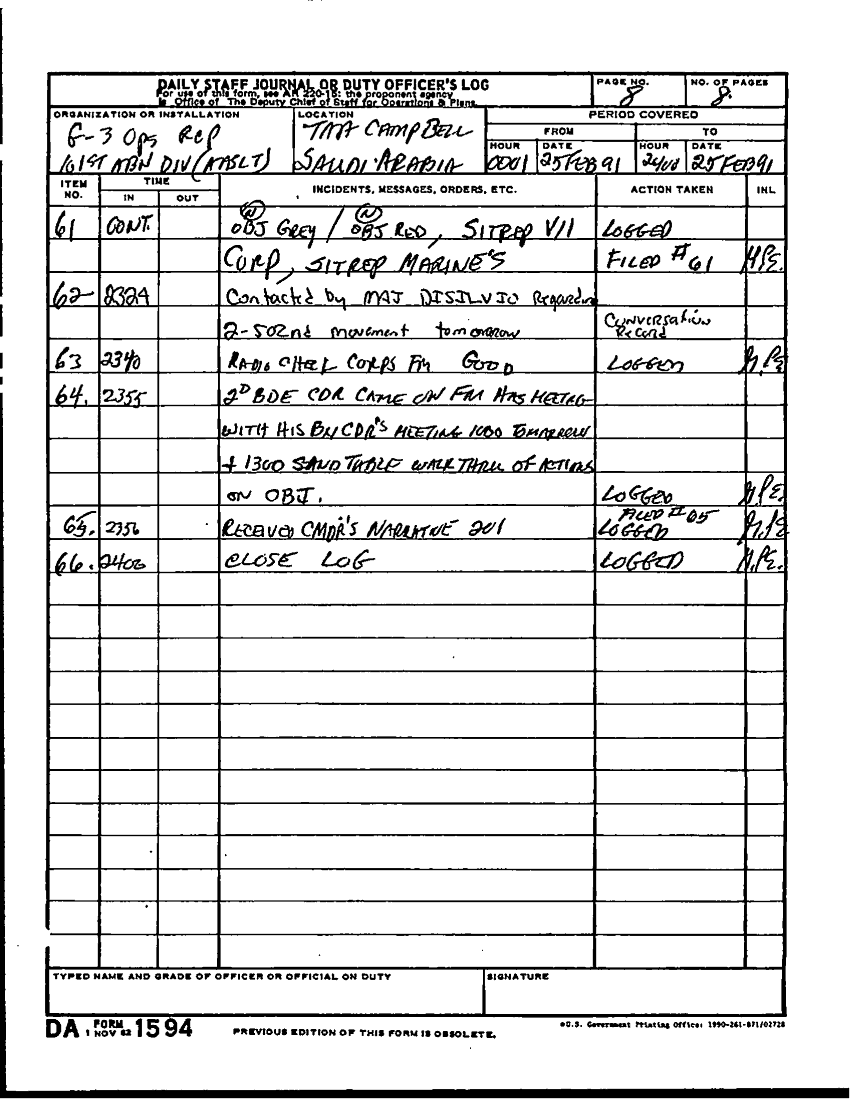 DAILY STAFF JOURNAL OR DUTY OFFICER'S LOG
For use of this form, see AR 220-15: the proponent agency
is Office of The Deputy Chief of Staff for Operations & Plans.
PAGE NO.
8
NO. OF PAGES
8.
ORGANIZATION OR INSTALLATION
G-3 Ops Rep
101ST ABN DIV (AASLT)
LOCATION
TAA CAMPBELL
SAUDI ARABIA
PERIOD COVERED
FROM TO
HOUR DATE HOUR DATE
0001 25 FEB 91 2400 25 FEB 91
ITEM NO. TIME IN OUT INCIDENTS, MESSAGES, ORDERS, ETC. ACTION TAKEN INL
61 CONT. (N) OBJ GREY / (N) OBJ RED, SITREP VII LOGGED
CORP, SITREP MARINE'S FILED # 61
62 2324 Contacted by MAJ DISILVIO Regarding
2-502nd movement tomorrow Conversation Record
63 2340 RADIO CHECK CORPS FM GOOD LOGGED
64. 2355 2D BDE CDR CAME ON FM HAS MEETING
WITH HIS BN CDR'S MEETING 1000 TOMARROW
+ 1300 SAND TABLE WALK THRU OF ACTIONS
ON OBJ. LOGGED
65. 2356 RECEIVED CMDR'S NARRATIVE 201 LOGGED FILED # 65
66. 2400 CLOSE LOG LOGGED
TYPED NAME AND GRADE OF OFFICER OR OFFICIAL ON DUTY
SIGNATURE
DA FORM 1 NOV 62 1594
PREVIOUS EDITION OF THIS FORM IS OBSOLETE.
U.S. Government Printing Office: 1990-261-871/02728